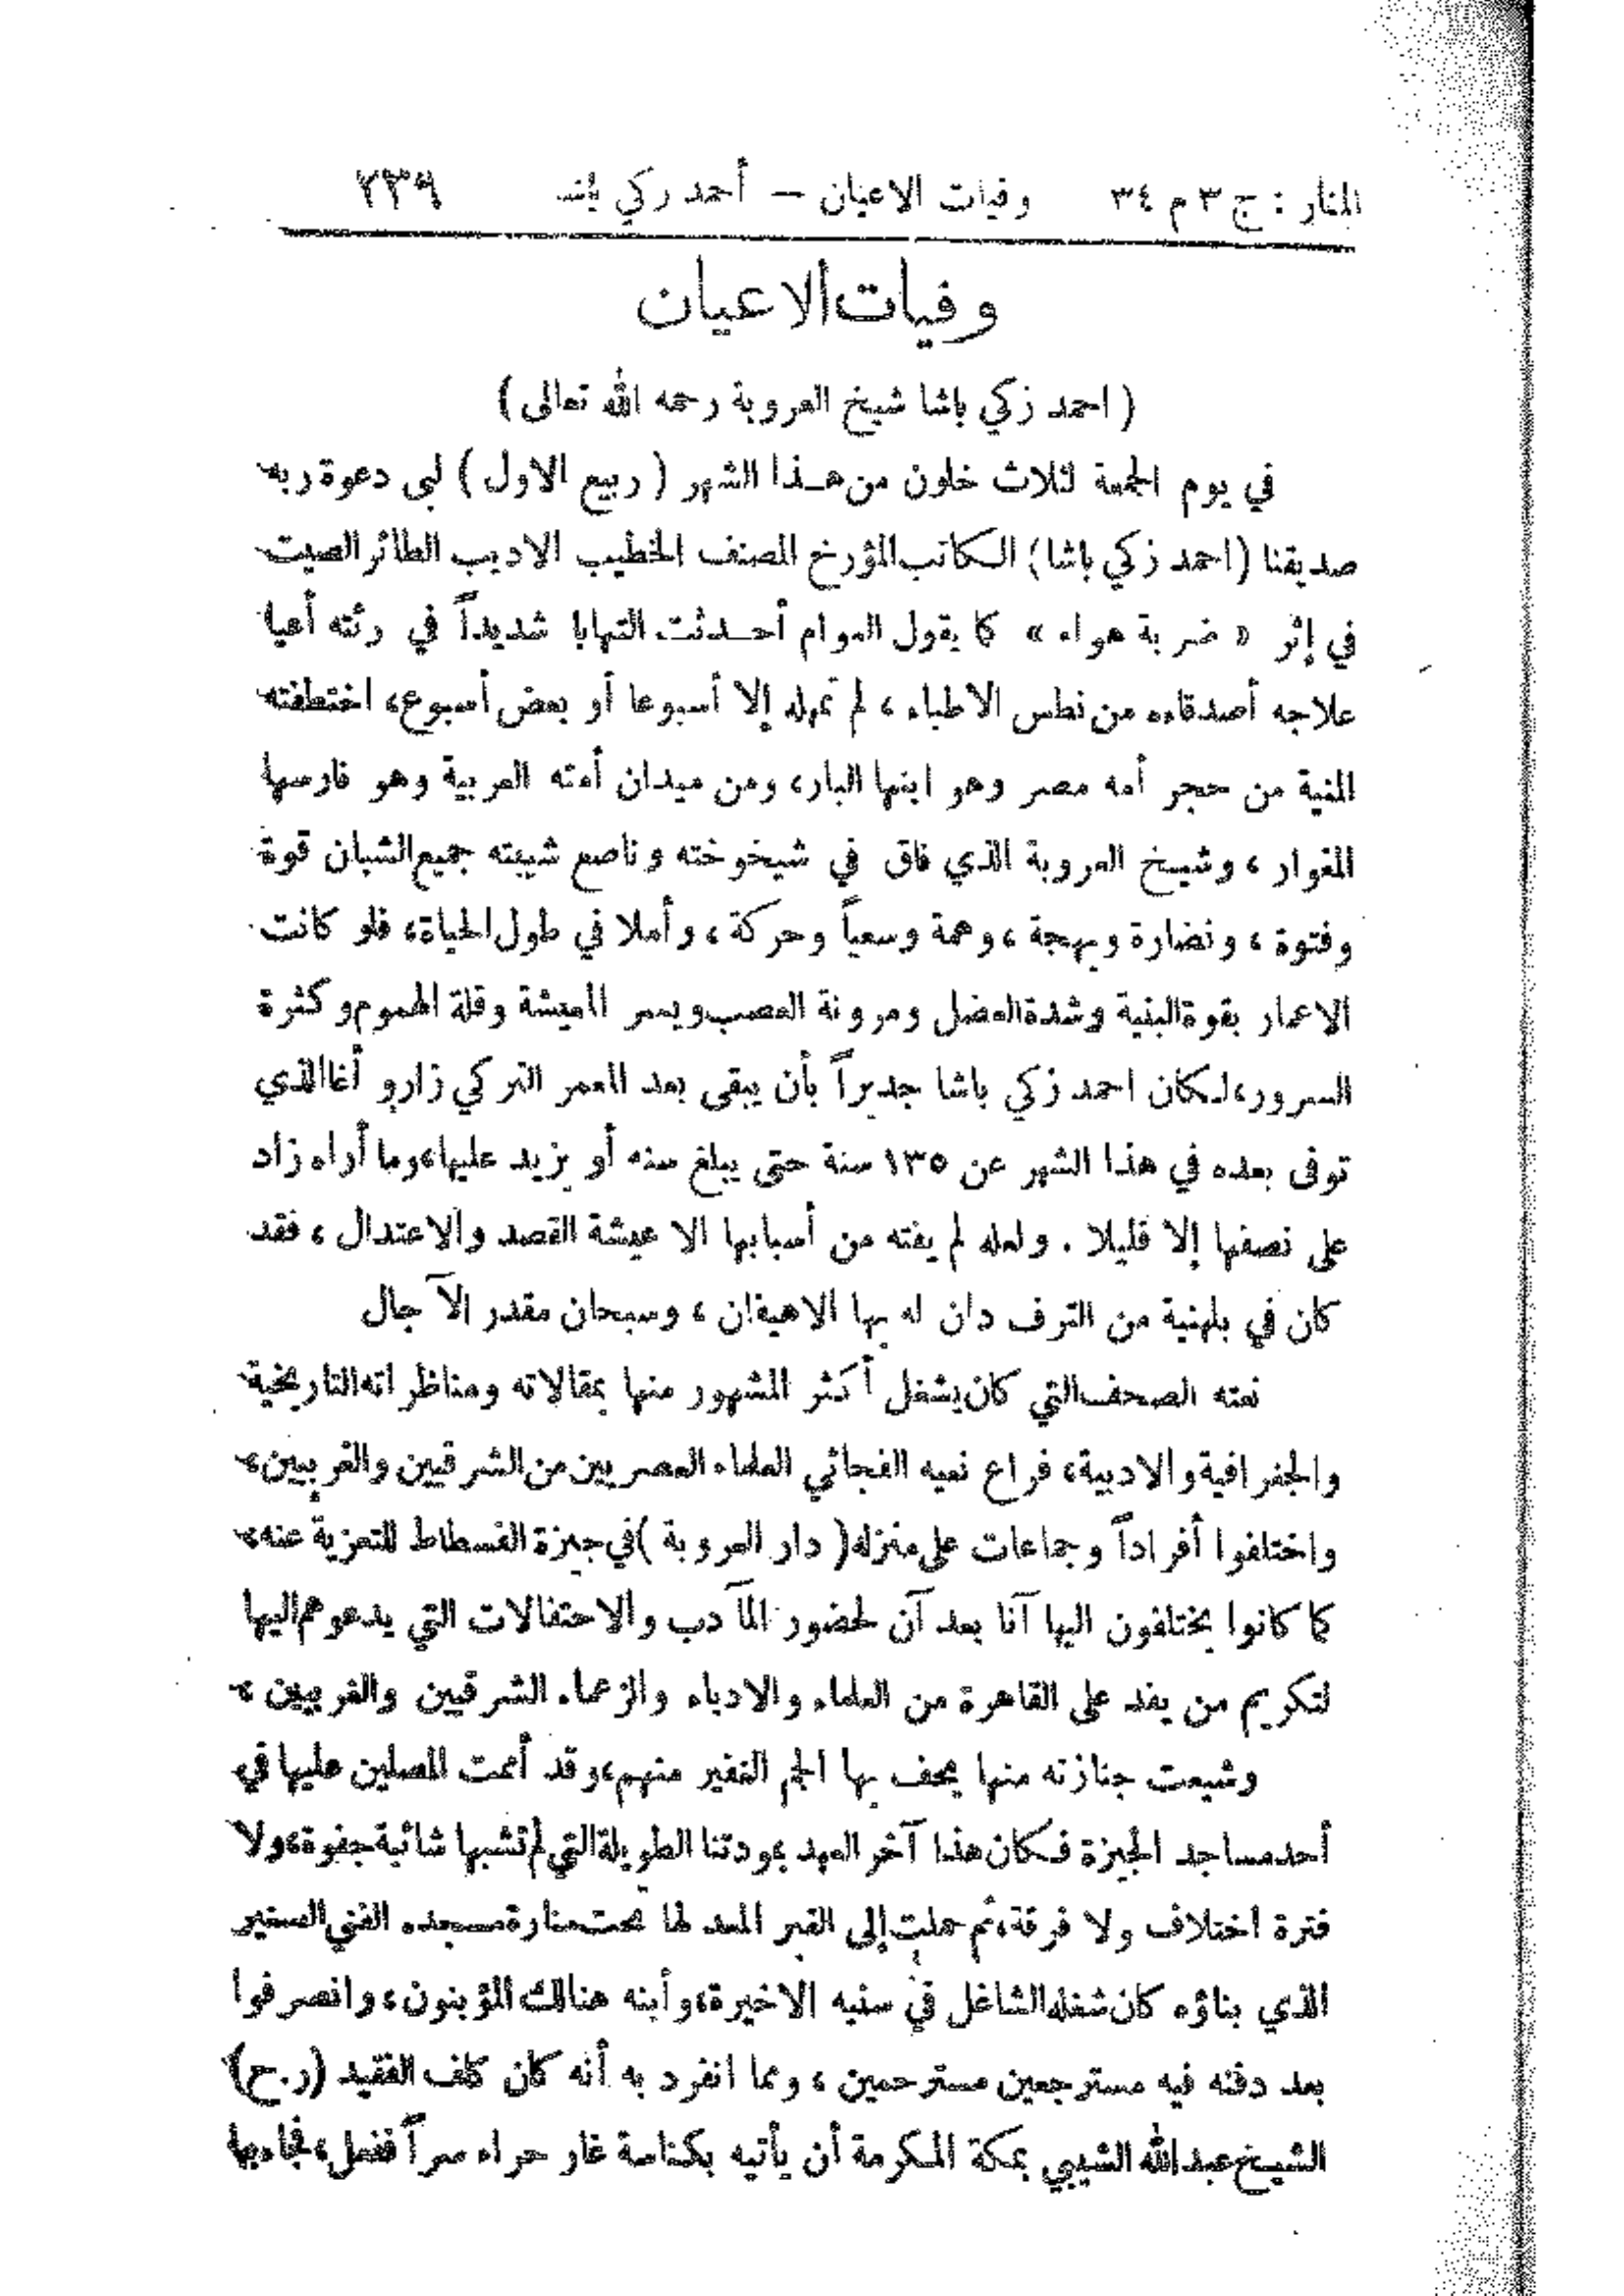 المنار : ج ٣ م ٣٤ وفيات الاعيان — أحمد زكي باشا ٢٣٩
وفيات الاعيان
( احمد زكي باشا شيخ العروبة رحمه الله تعالى )
في يوم الجمعة لثلاث خلون من هذا الشهر ( ربيع الاول ) لبى دعوة ربه
صديقنا ( احمد زكي باشا ) الكاتب المؤرخ المصنف الخطيب الاديب الطائر الصيت
في إثر « ضربة هواء » كما يقول العوام أحدثت التهابا شديداً في رئته أعيا
علاجه أصدقاءه من نطس الاطباء ، لم تمهله إلا أسبوعا أو بعض أسبوع، اختطفته
المنية من حجر أمه مصر وهو ابنها البار، ومن ميدان أمته العربية وهو فارسها
المغوار ، وشيخ العروبة الذي فاق في شيخوخته وناصع شيبته جميع الشبان قوة
وفتوة ، ونضارة وبهجة ، وهمة وسعياً وحركة ، وأملا في طول الحياة، فلو كانت
الاعمار بقوة البنية وشدة العضل ومرونة العصب ويسر المعيشة وقلة الهموم وكثرة
السرور، لكان احمد زكي باشا جديراً بأن يبقى بعد المعمر التركي زارو أغا الذي
توفى بعده في هذا الشهر عن ١٣٥ سنة حتى يبلغ سنه أو يزيد عليها، وما أراه زاد
على نصفها إلا قليلا . ولعله لم يفته من أسبابها الا عيشة القصد والاعتدال ، فقد
كان في بلهنية من الترف دان له بها الاهيفان ، وسبحان مقدر الآجال
نعته الصحف التي كان يشغل أكثر المشهور منها بمقالاته ومناظراته التاريخية
والجغرافية والادبية، فراع نعيه الفجائي العلماء العصريين من الشرقيين والغربيين،
واختلفوا أفراداً وجماعات على منزله ( دار العروبة ) في جيزة الفسطاط للتعزية عنه،
كما كانوا يختلفون اليها آنا بعد آن لحضور المآدب والاحتفالات التي يدعوهم اليها
لتكريم من يفد على القاهرة من العلماء والادباء والزعماء الشرقيين والغربيين ،
وشيعت جنازته منها يحف بها الجم الغفير منهم، وقد أممت المصلين عليها في
أحد مساجد الجيزة فكان هذا آخر العهد بمودتنا الطويلة التي لم تشبها شائبة جفوة، ولا
فترة اختلاف ولا فرقة، ثم حملت إلى القبر المعد لها تحت منارة مسجده الفني الصغير
الذي بناؤه كان شغله الشاغل في سنيه الاخيرة، وأبنه هنالك المؤبنون، وانصرفوا
بعد دفنه فيه مسترجعين مسترحمين ، ومما انفرد به أنه كان كلف الفقيد (ر.ح)
الشيخ عبد الله الشيبي بمكة المكرمة أن يأتيه بكناسة غار حراء سراً ففعل، فجاء بها